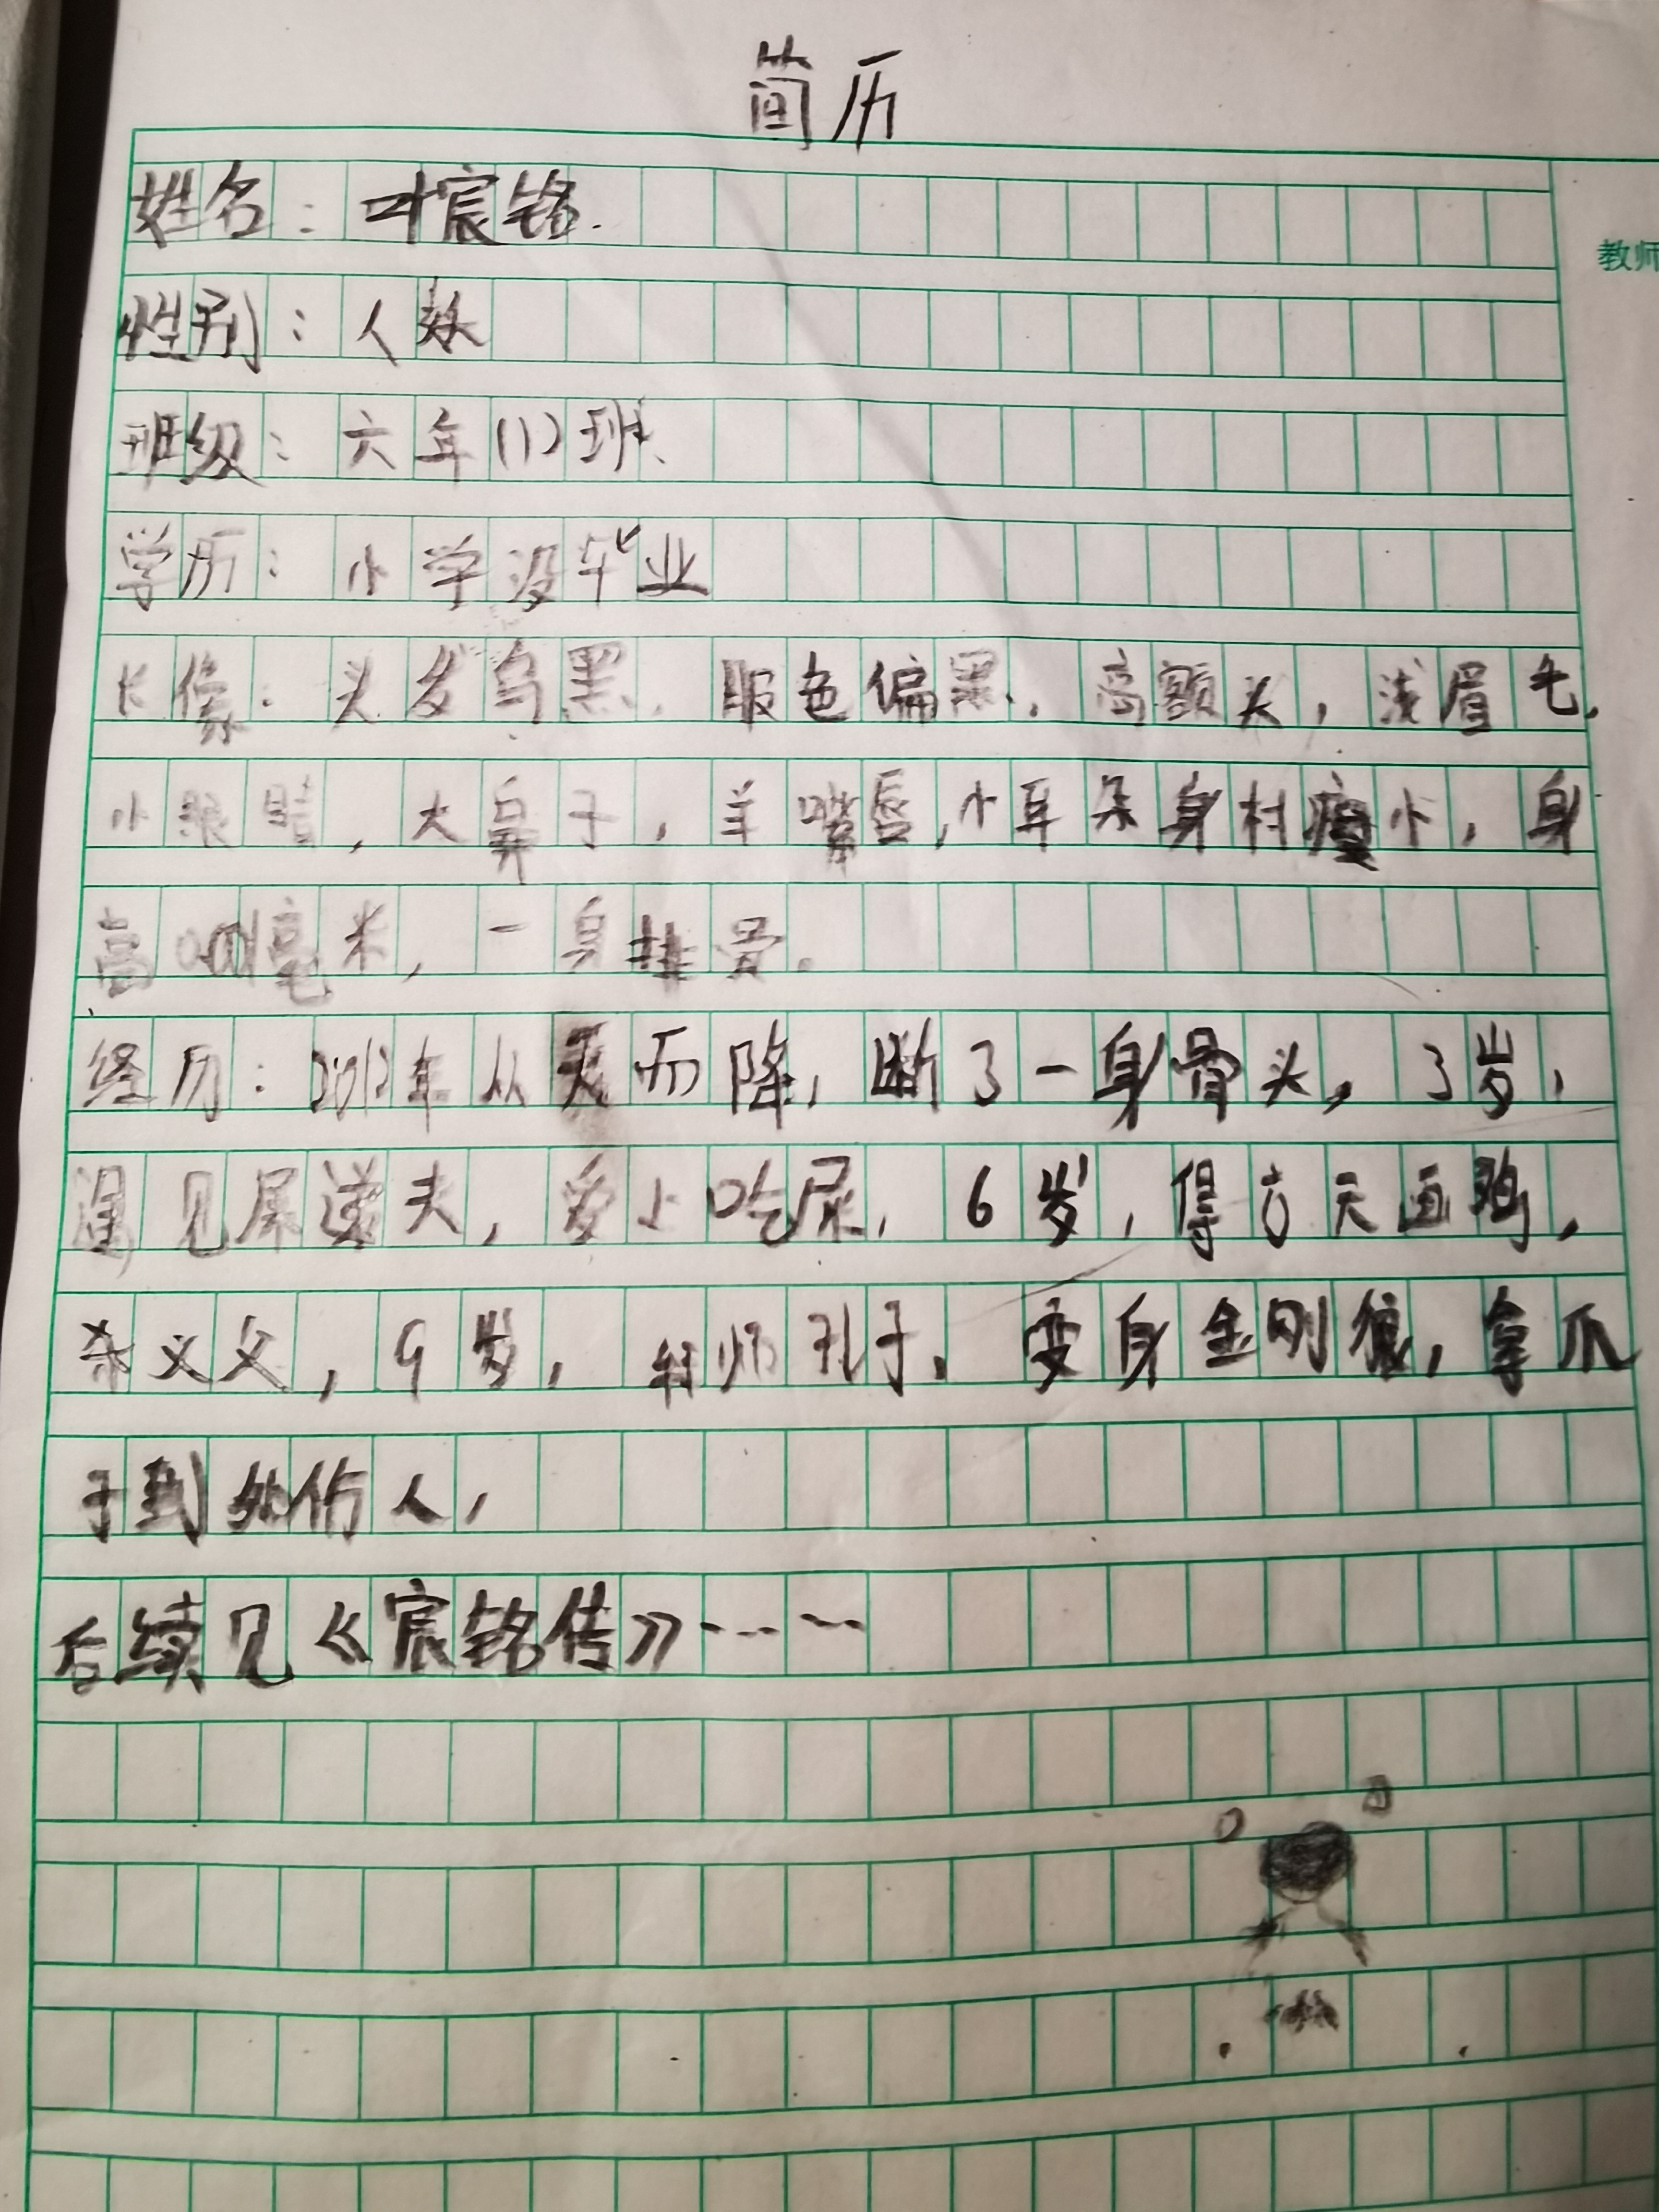 简历
教师
姓名：叶宸铭.
性别：人妖
班级：六年(1)班、
学历：小学没毕业
长像：头发乌黑，服色偏黑，高额头，浅眉毛，
小眼睛，大鼻子，羊嘴唇，小耳朵身材瘦小，身
高0.001毫米，一身排骨。
经历：2012年从天而降，断了一身骨头，3岁，
遇见屎递夫，爱上吃屎，6岁，得方天画鸡，
杀义父，9岁，拜师孔子，变身金刚狼，拿爪
子到处伤人，
后续见《宸铭传》……